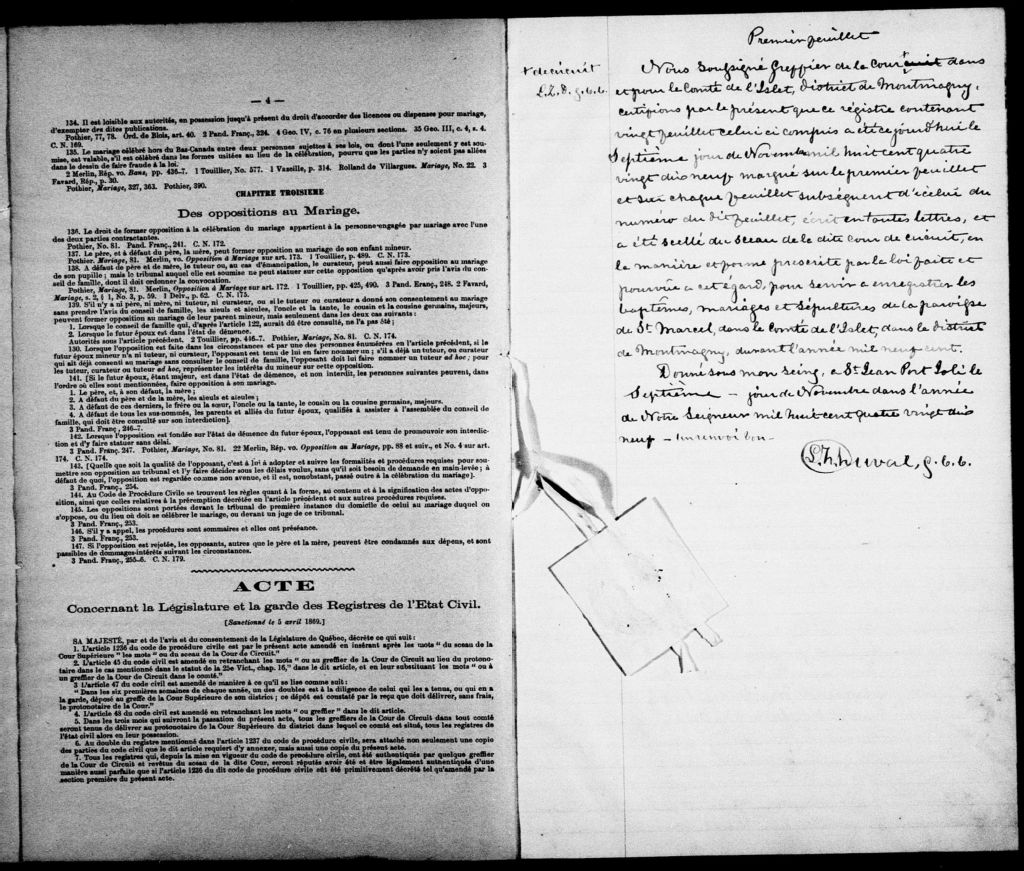 — 4 —
134. Il est loisible aux autorités, en possession jusqu'à présent du droit d'accorder des licences ou dispenses pour mariage,
d'exempter des dites publications.
Pothier, 77, 78. Ord. de Blois, art. 40. 2 Pand. Franç., 324. 4 Geo. IV, c. 76 en plusieurs sections. 35 Geo. III, c. 4, s. 4.
C. N. 169.
135. Le mariage célébré hors du Bas-Canada entre deux personnes sujettes à ses lois, ou dont l'une seulement y est sou-
mise, est valable, s'il est célébré dans les formes usitées au lieu de la célébration, pourvu que les parties n'y soient pas allées
dans le dessin de faire fraude à la loi.
2 Merlin, Rép. vo. Bans, pp. 436-7. 1 Touillier, No. 577. 1 Vazeille, p. 314. Rolland de Villargues. Mariage, No. 22. 3
Favard, Rép., p. 30.
Pothier, Mariage, 327, 363. Pothier, 390.
CHAPITRE TROISIEME
Des oppositions au Mariage.
136. Le droit de former opposition à la célébration du mariage appartient à la personne engagée par mariage avec l'une
des deux parties contractantes.
Pothier, No. 81. Pand. Franç., 241. C. N. 172.
137. Le père, et à défaut du père, la mère, peut former opposition au mariage de son enfant mineur.
Pothier. Mariage, 81. Merlin, vo. Opposition à Mariage sur art. 173. 1 Touillier, p. 489. C. N. 173.
138. A défaut de père et de mère, le tuteur ou, au cas d'émancipation, le curateur, peut aussi faire opposition au mariage
de son pupille ; mais le tribunal auquel elle est soumise ne peut statuer sur cette opposition qu'après avoir pris l'avis du con-
seil de famille, dont il doit ordonner la convocation.
Pothier, Mariage, 81. Merlin, Opposition à Mariage sur art. 172. 1 Touillier, pp. 425, 490. 3 Pand. Franç., 248. 2 Favard,
Mariage, s. 2, § 1, No. 3, p. 59. 1 Delv., p. 62. C. N. 175.
139. S'il n'y a ni père, ni mère, ni tuteur, ni curateur, ou si le tuteur ou curateur a donné son consentement au mariage
sans prendre l'avis du conseil de famille, les aïeuls et aïeules, l'oncle et la tante, le cousin et la cousine germains, majeurs,
peuvent former opposition au mariage de leur parent mineur, mais seulement dans les deux cas suivants :
1. Lorsque le conseil de famille qui, d'après l'article 122, aurait dû être consulté, ne l'a pas été ;
2. Lorsque le futur époux est dans l'état de démence.
Autorités sous l'article précédent, 2 Touillier, pp. 416-7. Pothier, Mariage, No. 81. C. N. 174.
130. Lorsque l'opposition est faite dans les circonstances et par une des personnes énumérées en l'article précédent, si le
futur époux mineur n'a ni tuteur, ni curateur, l'opposant est tenu de lui en faire nommer un ; s'il a déjà un tuteur, ou curateur
qui ait déjà consenti au mariage sans consulter le conseil de famille, l'opposant doit lui faire nommer un tuteur ad hoc ; pour
les tuteur, curateur ou tuteur ad hoc, représenter les intérêts du mineur sur cette opposition.
141. [Si le futur époux, étant majeur, est dans l'état de démence, et non interdit, les personnes suivantes peuvent, dans
l'ordre où elles sont mentionnées, faire opposition à son mariage.
1. Le père, et, à son défaut, la mère ;
2. A défaut du père et de la mère, les aïeuls et aïeules ;
3. A défaut de ces derniers, le frère ou la sœur, l'oncle ou la tante, le cousin ou la cousine germains, majeurs.
4. A défaut de tous les sus-nommés, les parents et alliés du futur époux, qualifiés à assister à l'assemblée du conseil de famille,
qui doit être consulté sur son interdiction].
3 Pand. Franç., 246-7.
142. Lorsque l'opposition est fondée sur l'état de démence du futur époux, l'opposant est tenu de promouvoir son interdic-
tion et d'y faire statuer sans délai.
3 Pand. Franç. 247. Pothier, Mariage, No. 81. 22 Merlin, Rép. vo. Opposition au Mariage, pp. 88 et suiv., et No. 4 sur art.
174. C. N. 174.
143. [Quelle que soit la qualité de l'opposant, c'est à lui à adopter et suivre les formalités et procédures requises pour sou-
mettre son opposition au tribunal et l'y faire décider sous les délais voulus, sans qu'il soit besoin de demande en main-levée ; à
défaut de quoi, l'opposition est regardée comme non avenue, et il est, nonobstant, passé outre à la célébration du mariage].
3 Pand. Franç., 254.
144. Au Code de Procédure Civile se trouvent les règles quant à la forme, au contenu et à la signification des actes d'oppo-
sition, ainsi que celles relatives à la péremption décrétée en l'article précédent et aux autres procédures requises.
145. Les oppositions sont portées devant le tribunal de première instance du domicile de celui au mariage duquel on
s'oppose, ou du lieu où doit se célébrer le mariage, ou devant un juge de ce tribunal.
3 Pand. Franç., 253.
146. S'il y a appel, les procédures sont sommaires et elles ont préséance.
3 Pand. Franç., 253.
147. Si l'opposition est rejetée, les opposants, autres que le père et la mère, peuvent être condamnés aux dépens, et sont
passibles de dommages-intérêts suivant les circonstances.
3 Pand. Franç., 255-6. C. N. 179.
ACTE
Concernant la Législature et la garde des Registres de l'Etat Civil.
[Sanctionné le 5 avril 1869.]
SA MAJESTÉ, par et de l'avis et du consentement de la Législature de Québec, décrète ce qui suit :
1. L'article 1236 du code de procédure civile est par le présent acte amendé en insérant après les mots " du sceau de la
Cour Supérieure " les mots " ou du sceau de la Cour de Circuit."
2. L'article 45 du code civil est amendé en retranchant les mots " ou au greffier de la Cour de Circuit au lieu du protono-
taire dans le cas mentionné dans le statut de la 25e Vict., chap. 16," dans le dit article, et en leur substituant les mots " ou à
un greffier de la Cour de Circuit dans le comté."
3 L'article 47 du code civil est amendé de manière à ce qu'il se lise comme suit :
" Dans les six premières semaines de chaque année, un des doubles est à la diligence de celui qui les a tenus, ou qui en a
la garde, déposé au greffe de la Cour Supérieure de son district ; ce dépôt est constaté par le reçu que doit délivrer, sans frais,
le protonotaire de la Cour."
4. L'article 48 du code civil est amendé en retranchant les mots " ou greffier " dans le dit article.
5. Dans les trois mois qui suivront la passation du présent acte, tous les greffiers de la Cour de Circuit dans tout comté
seront tenus de délivrer au protonotaire de la Cour Supérieure du district dans lequel ce comté est situé, tous les registres de
l'état civil alors en leur possession.
6. Au double du registre mentionné dans l'article 1237 du code de procédure civile, sera attaché non seulement une copie
des parties du code civil que le dit article requiert d'y annexer, mais aussi une copie du présent acte.
7. Tous les registres qui, depuis la mise en vigueur du code de procédure civile, ont été authentiqués par quelque greffier
de la Cour de Circuit et revêtus du sceau de la dite Cour, seront réputés avoir été et être légalement authentiqués d'une
manière aussi parfaite que si l'article 1236 du dit code de procédure civile eût été primitivement décrété tel qu'amendé par la
section première du présent acte.
Premier feuillet
+ de circuit
Nous Soussigné Greffier de la Cour + cuit dans
et pour le Comté de l'Islet, District de Montmagny,
certifions par le présent que ce régistre contenant
vingt feuillet celui ci compris a été ce jourd'hui le
Septième jour de Novembre mil huit cent quatre
vingt dix neuf marqué sur le premier feuillet
et sur chaque feuillet subséquent d'icelui du
numéro du dit feuillet, écrit en toutes lettres, et
a été scellé du sceau de la dite cour de circuit, en
la manière et forme prescrite par la loi faite et
pourvue a cet égard, pour servir a enregistrer les
baptêmes, mariages et Sépultures de la paroisse
de St Marcel, dans le Comté de l'Islet, dans le district
de Montmagny, durant l'année mil neuf cent.
Donné sous mon seing, a St Jean Port Joli le
Septième — jour de Novembre dans l'année
de Notre Seigneur mil huit cent quatre vingt dix
neuf — un renvoi bon —
Duval, g. c. c.